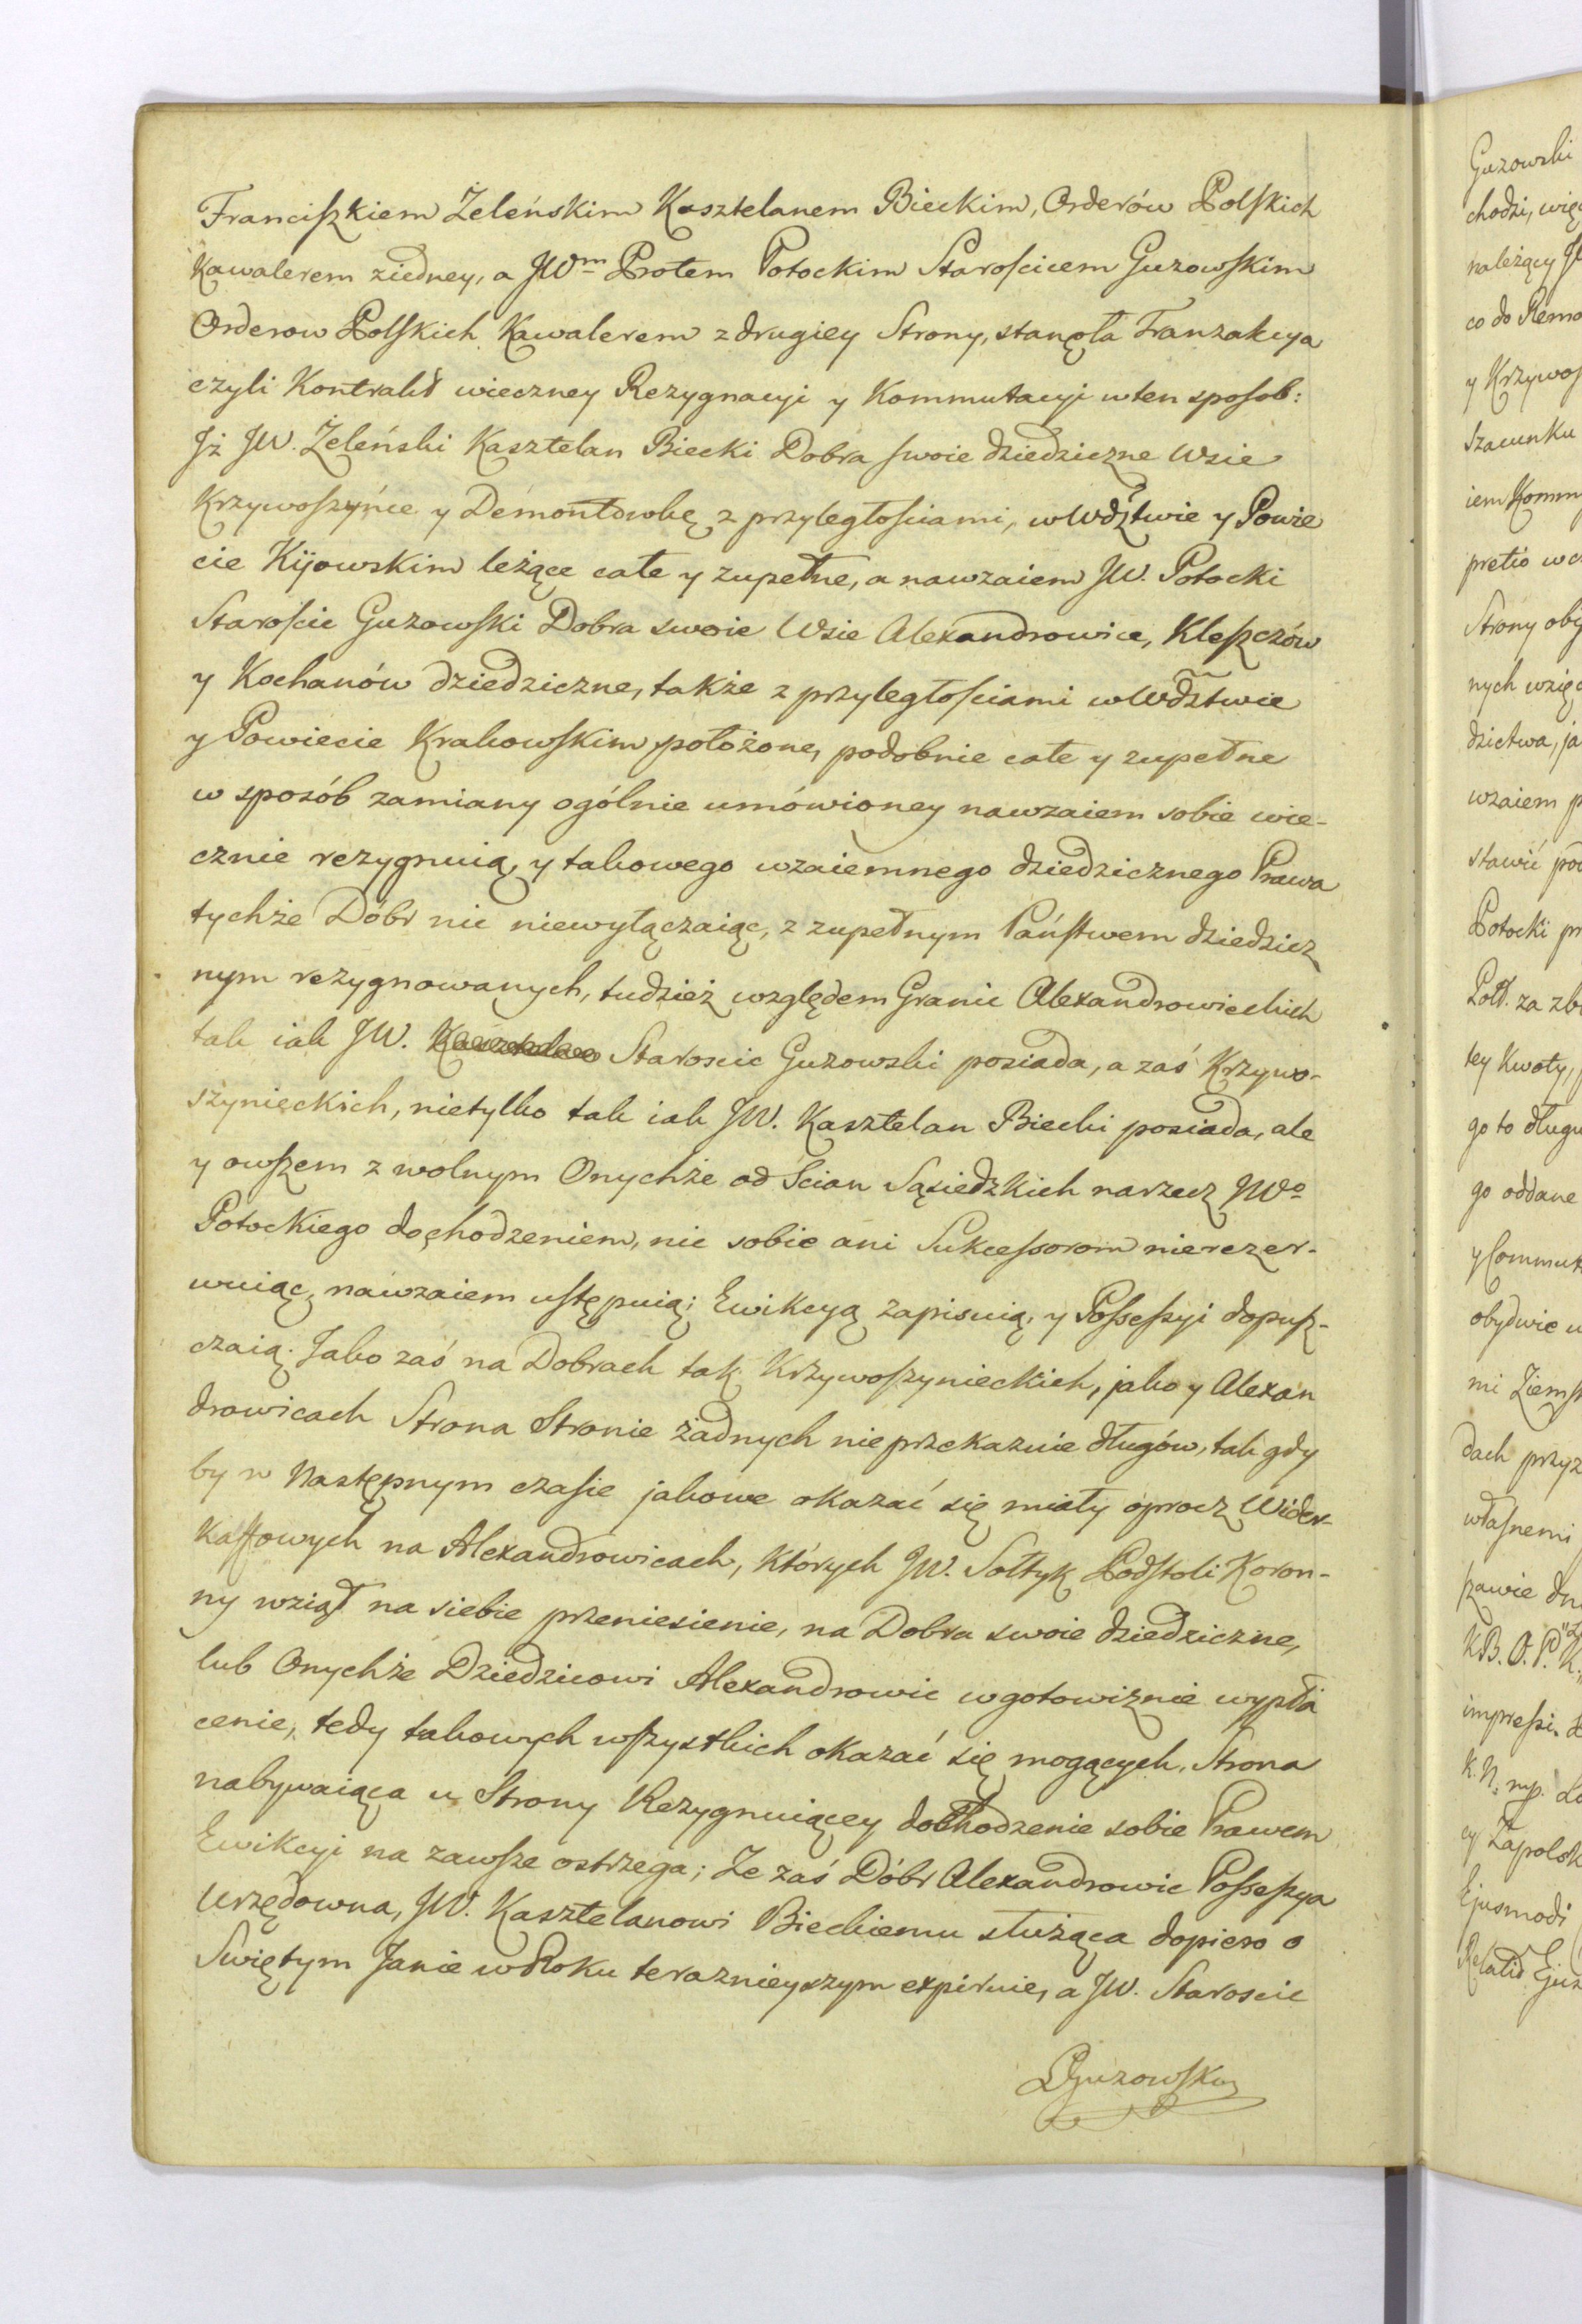 Franciszkiem Żeleńskim Kasztelanem Bieckim, Orderów Polskich
Kawalerem ziedney, a JWm Protem Potockim Starościcem Guzowskim
Orderow Polskich Kawalerem z drugiey Strony, stanęła Tranzakcya
czyli Kontrakt wieczney Rezygnacyi y Kommutacyi w ten sposob:
Jż JW. Żeleński Kasztelan Biecki Dobra swoie dziedziczne Wsie
Krzywoszyńce y Demontowkę z przyległościami, w Wdztwie y Powie
cie Kijowskim leżące całe y zupełne, a nawzaiem JW. Potocki
Starościc Guzowski Dobra swoie Wsie Alexandrowice, Kleszczów
y Kochanów dziedziczne, także z przyległościami w Wdztwie
y Powiecie Krakowskim położone, podobnie całe y zupełne
w sposób zamiany ogólnie umówioney nawzaiem sobie wie-
cznie rezygnuią, y takowego wzaiemnego dziedzicznego Prawa
tychże Dóbr nic niewyłączaiąc, z zupełnym Państwem dziedzicz
nym rezygnowanych, tudzież względem Granic Alexandrowickich
tak iak JW. Kasztelan Staroscic Guzowski posiada, a zaś Krzywo-
szynieckich, nietylko tak iak JW. Kasztelan Biecki posiada, ale
y owszem z wolnym Onychże od Scian Sąsiedzkich narzecz JWo
Potockiego dochodzeniem, nic sobie ani Sukcessorom nierezer-
wuiąc, nawzaiem ustępuią; Ewikcyą zapisuią, y Possessyi dopusz-
czaią. Jako zaś na Dobrach tak Krzywoszynieckich, jako y Alexan
drowicach Strona Stronie żadnych nieprzekazuie długów, tak gdy
by w Następnym czasie jakowe okazać się miały oprocz Wider-
kaffowych na Alexandrowicach, których JW. Sołtyk Podstoli Koron-
ny wziął na siebie przeniesienie, na Dobra swoie dziedziczne,
lub Onychże Dziedzicowi Alexandrowic w gotowiznie wypła
cenie, tedy takowych wszystkich okazać się mogących, Strona
nabywaiąca u Strony Rezygnuiącey dochodzenie sobie Prawem
Ewikcyi na zawsze ostrzega; Ze zaś Dóbr Alexandrowic Possessya
Urzędowna, JW. Kasztelanowi Bieckiemu służąca dopiero o
Swiętym Janie w Roku teraznieyszym expiruie, a JW. Staroscic
Guzowski
Guzowski
chodzi, więc
należący
co do Remo
y Krzywos
szacunku
iem Komm
pretio
Strony oby
nych wzię
dzictwa, ja
wzaiem p
stawić pod
Potocki pr
Potk. za zb
tey kwoty,
go to długu
go oddane
y Commut
obydwie
mi Ziems
dach przyz
własnemi
szawie dn
impressi.
ey Zapolsk
Ejusmodi